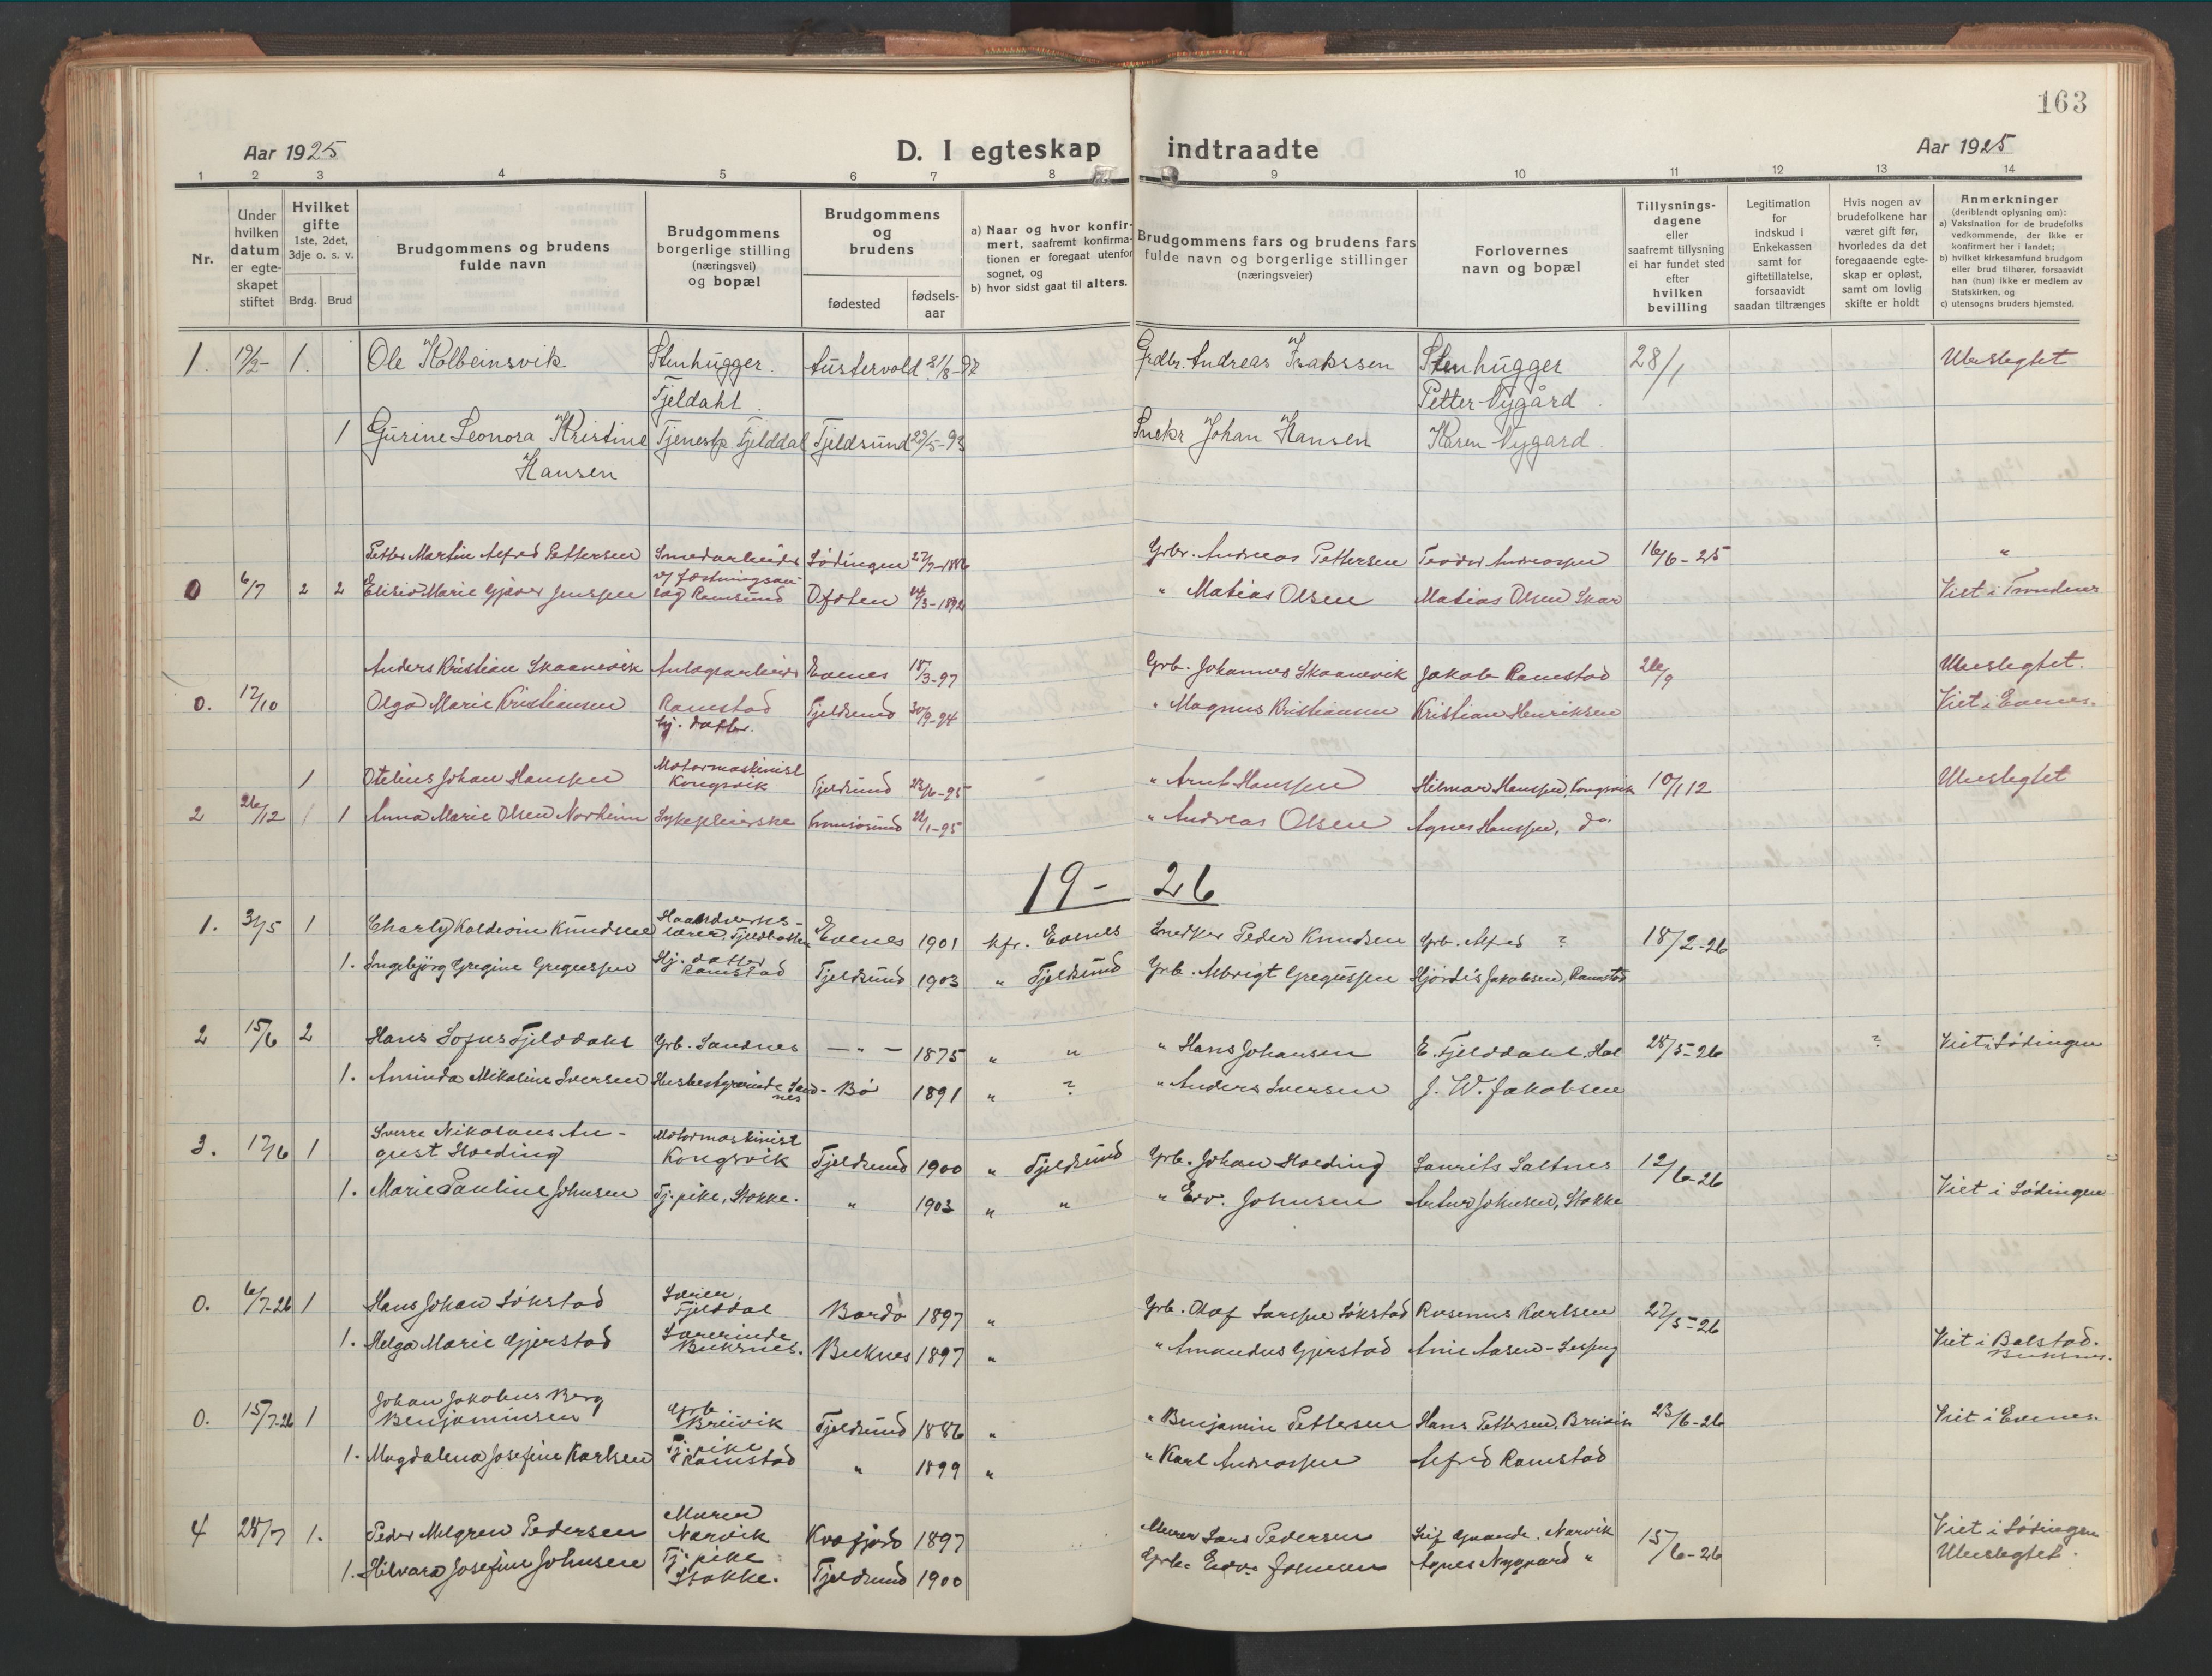 163
Aar 1925 D. I egteskap indtraadte Aar 1925
1 2 3 4 5 6 7 8 9 10 11 12 13 14
Nr.
Under hvilken datum er egteskapet stiftet
Hvilket gifte 1ste, 2det, 3dje o. s. v.
Brdg. Brud
Brudgommens og brudens fulde navn
Brudgommens borgerlige stilling (næringsvei) og bopæl
Brudgommens og brudens
fødested fødsels-aar
a) Naar og hvor konfirmert, saafremt konfirmationen er foregaat utenfor sognet, og
b) hvor sidst gaat til alters.
Brudgommens fars og brudens fars fulde navn og borgerlige stillinger (næringsveier)
Forlovernes navn og bopæl
Tillysningsdagene eller saafremt tillysning ei har fundet sted efter hvilken bevilling
Legitimation for indskud i Enkekassen samt for giftetillatelse, forsaavidt saadan tiltrænges
Hvis nogen av brudefolkene har været gift før, hvorledes da det foregaaende egteskap er opløst, samt om lovlig skifte er holdt
Anmerkninger (deriblandt oplysning om):
a) Vaksination for de brudefolks vedkommende, der ikke er konfirmert her i landet;
b) hvilket kirkesamfund brudgom eller brud tilhører, forsaavidt han (hun) ikke er medlem av Statskirken, og
c) utensogns bruders hjemsted.
1. 19/2- 1. Ole Kolbeinsvik Stenhugger. Austervold Grdbr. Andreas Isakssen Stenhugger 28/1 Ubeslegtet
Fjeldahl. Petter Nygård.
1 Gurine Leonora Kristine Tjenestp. Fjelddal Fjeldsund 23/5-93 Snekr Johan Hansen Karen Nygard.
Hansen
Petter Martin Alfred Pettersen Smedarbeider Lødingen 27/7-1886 Grbr. Andreas Pettersen Teodor Andreassen 16/6-25 "
0 6/7 2 2 Marie Gjæver Jenssen v/ fæstningsanlæg Ramsund Ofoten " Matias Olsen Matias Olsen Skar Viet i Trondenes
Anders Kristian Skaanevik Anlægsarbeider Evenes 18/3-97 Grb. Johannes Skaanevik Jakob Ramstad 26/9 Ubeslegtet.
0. 12/10 Olga Marie Kristiansen Ramstad Fjeldsund 30/9-94 " Magnus Kristiansen Kristian Henriksen Viet i Evenes.
hj. datter.
1 Otelius Johan Hanssen Motormaskinist Kongsvik Fjeldsund " Arnt Hanssen Hilmar Hanssen, Kongsvik Ubeslegtet
2 26/12 1 1 Anna Marie Olsen Norheim Sykepleierske Tromsøsund " Andreas Olsen Agnes Hanssen, do.
19-26
1. 31/5 1 Charly Baldevin Knudsen Haandverkslærer, Evenes 1901 kfr. Evenes Snedker Peder Knudsen Grb. Alfred ? 18/2-26
1. Ingebjørg Gregine Gregussen Hj. datter Ramstad Fjeldsund 1903 " Fjeldsund Grb. Albrigt Gregussen Hjördis Jakobsen, Ramstad
2 15/6 2 Hans Sofus Fjelddahl Grb. Sandnes —"— 1875 " " " Hans Johansen E. Fjelddahl, Hol 28/5-26 ? Viet i Lødingen
1. Aminda Mikaline Iversen Husbestyrerinde Sandnes Bø 1891 " ? " Anders Iversen J. W. Jakobsen
3. 17/6 1 Sverre Nikolaus August Hveding Motormaskinist Kongsvik Fjeldsund 1900 " Fjeldsund Grb. Johan Hveding Laurits Saltnes 12/6-26
1. Marie Pauline Johnsen Tj. pike, Stokke. " 1903 " " " Edv. Johnsen Artur Johnsen, Stokke Viet i Lødingen
0. 6/7-26 1 Hans Johan Løkstad Lærer, Fjelddal Bardo 1897 " Grb. Olaf Larssen Løkstad Rasmus Karlsen 27/5-26
1. Helga Marie Gjerstad Lærerinde Buksnes. Buknes 1897 " " Amandus Gjerstad Anie Aasen- Viet i Balstad. Buksnes.
0. 15/7-26 1 Johan Jakobus Berg Benjaminsen Grb. Breivik Fjeldsund 1886 " " Benjamin Pettersen Hans Pettersen, Breivik 23/6-26 Viet i Evenes.
1. Magdalena Josefine Karlsen Tj. pike Ramstad " 1899 " " Karl Andreassen Alfred Ramstad
4 28/7 1. Peder Melgren Pedersen Murer Narvik Kvæfjord 1897 Murer Lars Pedersen Narvik 15/6-26 Viet i Lødingen
1. Hilvara Josefine Johnsen Tj. pike Stokke. Fjeldsund 1900 Grb. Edv. Johnsen Agnes Nygaard " Ubeslegtet.